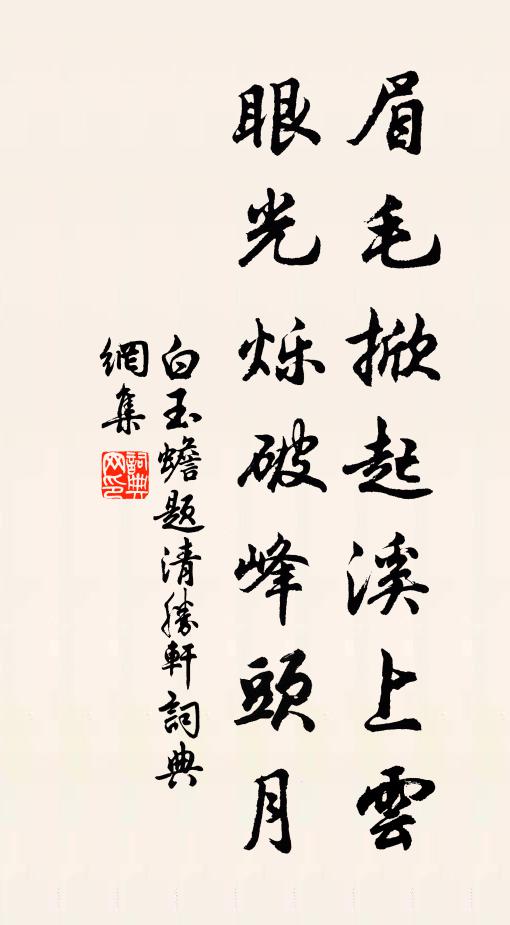 眉毛掀起溪上雲
眼光烁破峰頭月
白玉蟾题清勝軒詞典
網集
詞典网印